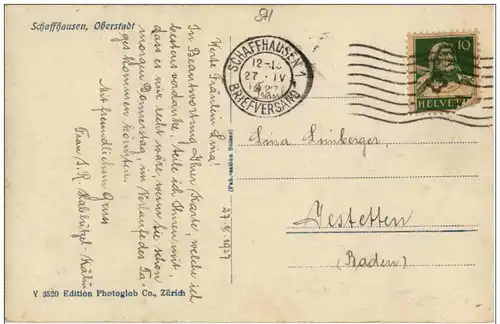 Schaffhausen, Oberstadt
SH
SCHAFFHAUSEN 1
12-13
27. IV
1927
BRIEFVERSAND
10
HELVETIA
Werte Fräulein Lina!
In Beantwortung Ihrer Karte, welche ich
bestens verdanke, teile ich Ihnen mit,
dass es mir recht wäre, wenn Sie schon
morgen Donnerstag, im Verlaufe des Ta-
ges kommen könnten.
Mit freundlichem Gruss
Frau
27.4.1927
Lina
Jestetten
(Baden)
Y 3520 Edition Photoglob Co., Zürich